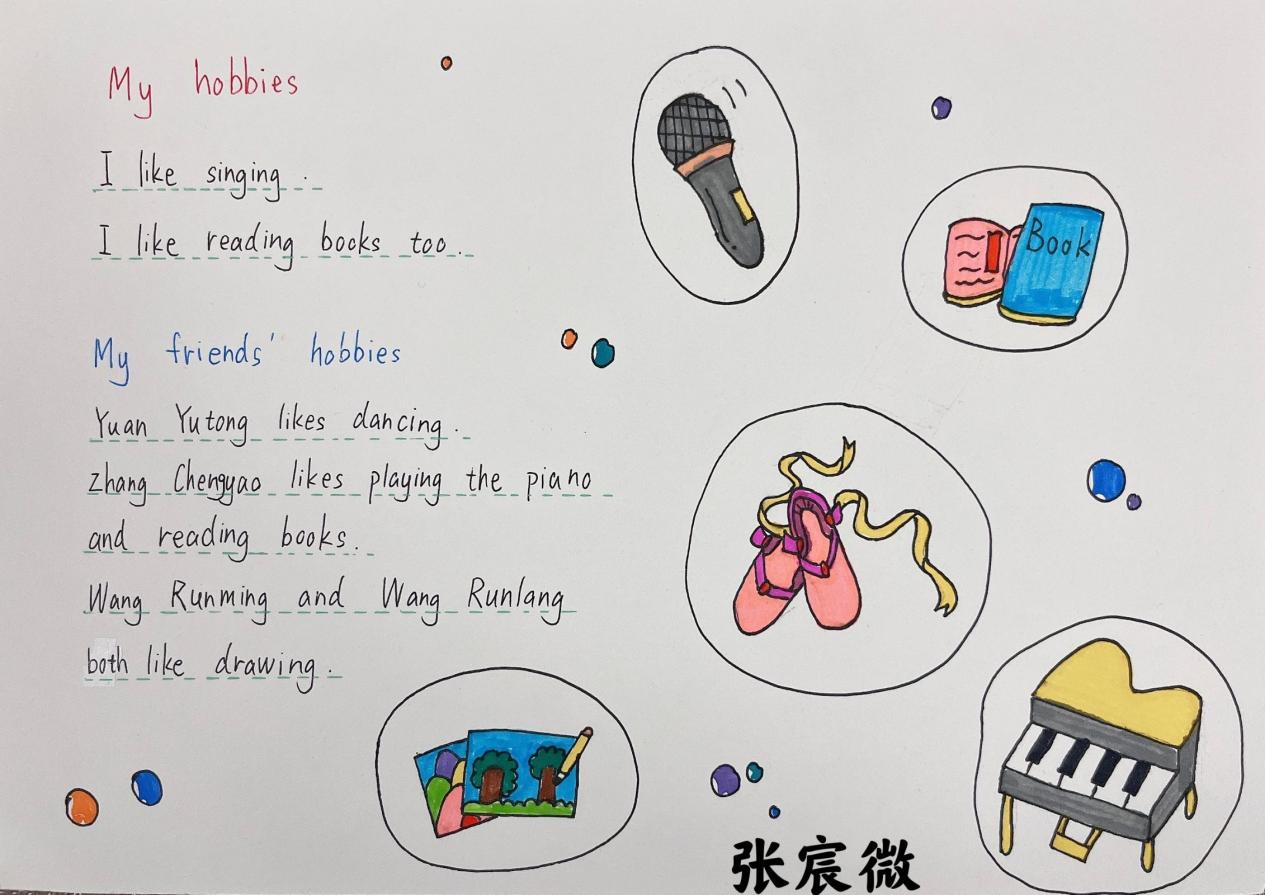 My hobbies
I like singing.
I like reading books too.
Book
My friends' hobbies
Yuan Yutong likes dancing.
zhang Chengyao likes playing the piano
and reading books.
Wang Runming and Wang Runlang
both like drawing.
张宸微